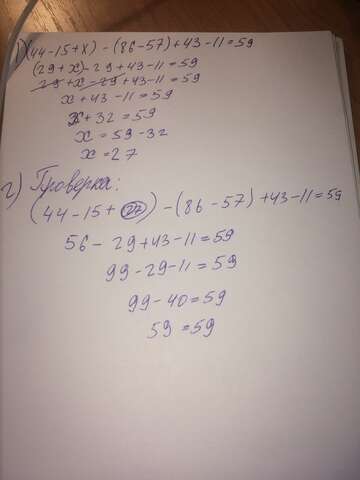 1) (44-15+x) - (86-57)+43-11=59
(29+x)-29+43-11=59
29+x-29+43-11=59
x+43-11=59
x+32=59
x=59-32
x=27
2) Проверка:
(44-15+27) -(86-57)+43-11=59
56-29+43-11=59
99-29-11=59
99-40=59
59=59